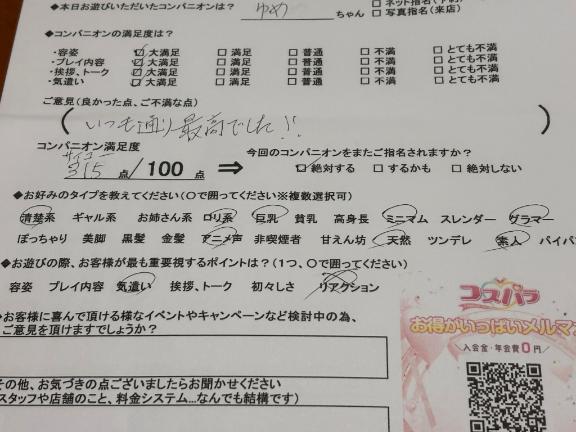 ◆本日お遊びいただいたコンパニオンは？ ゆめ ちゃん □ネット指名
□写真指名(来店)
◆コンパニオンの満足度は？
・容姿 ☑大満足 □満足 □普通 □不満 □とても不満
・プレイ内容 ☑大満足 □満足 □普通 □不満 □とても不満
・挨拶、トーク ☑大満足 □満足 □普通 □不満 □とても不満
・気遣い ☑大満足 □満足 □普通 □不満 □とても不満
ご意見(良かった点、ご不満な点)
(いつも通り最高でした!!)
コンパニオン満足度 今回のコンパニオンをまたご指名されますか？
サイコー
315点/100点 ⇒ ☑絶対する □するかも □絶対しない
◆お好みのタイプを教えてください(○で囲ってください※複数選択可)
清楚系 ギャル系 お姉さん系 ロリ系 巨乳 貧乳 高身長 ミニマム スレンダー グラマー
ぽっちゃり 美脚 黒髪 金髪 アニメ声 非喫煙者 甘えん坊 天然 ツンデレ 素人 パイパ
◆お遊びの際、お客様が最も重要視するポイントは？(1つ、○で囲ってください)
容姿 プレイ内容 気遣い 挨拶、トーク 初々しさ リアクション
◆お客様に喜んで頂ける様なイベントやキャンペーンなど検討中の為、
ご意見を頂けますでしょうか？
コスパラ
お得がいっぱいメルマ
入会金・年会費0円
その他、お気づきの点ございましたらお聞かせください
スタッフや店舗のこと、料金システム…なんでも結構です)